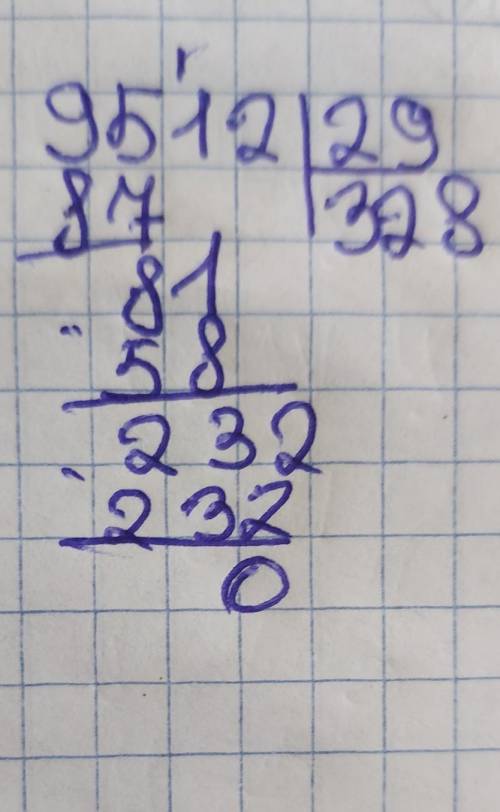 9512 | 29
87 | 328
81
58
232
232
0